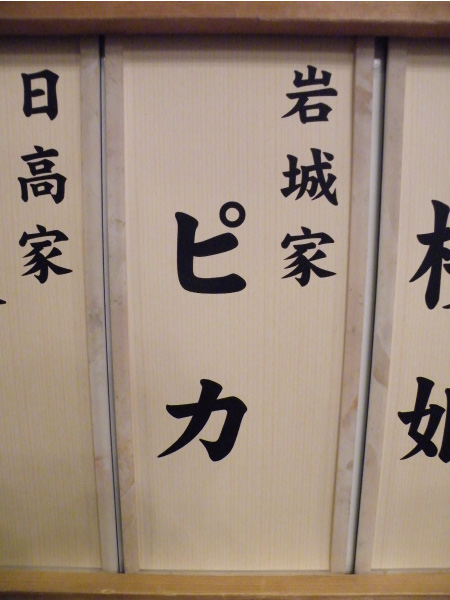 岩城家
ピカ
日高家